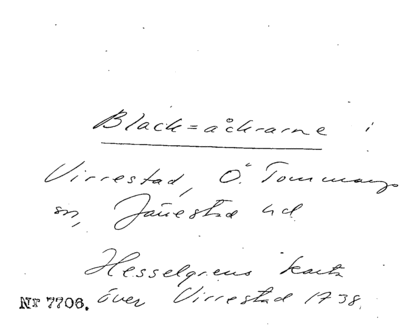 Black=åckrarne i
Virrestad, Ö. Tommarps
sn, Järrestad hd
Hesselgrens karta
Nr 7706. över Virrestad 1738.